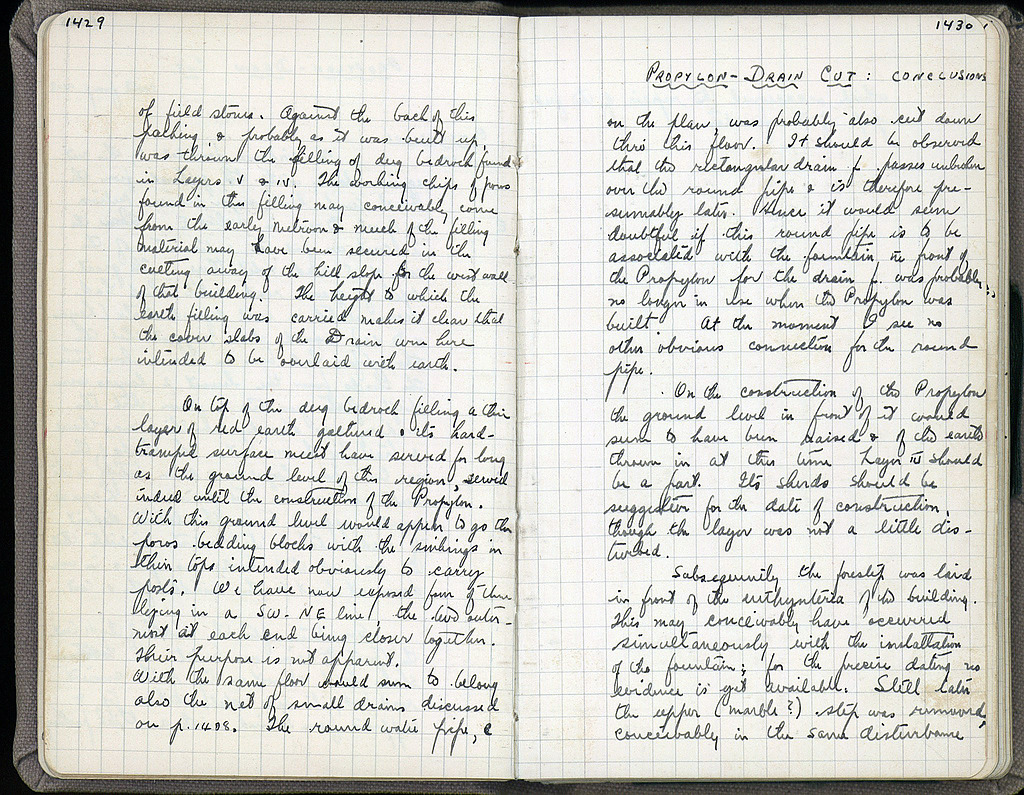 1429
of field stones. Against the back of this
packing & probably as it was built up,
was thrown the filling of dug bedrock found
in Layers V & IV. The working chips of poros
found in this filling may conceivably come
from the early Metroon & much of the filling
material may have been secured in the
cutting away of the hill slope for the west wall
of that building. The height to which the
earth filling was carried makes it clear that
the cover slabs of the Drain were here
intended to be overlaid with earth.
On top of the dug bedrock filling a thin
layer of red earth gathered & its hard-
trampled surface must have served for long
as the ground level of this region, served
indeed until the construction of the Propylon.
With this ground level would appear to go the
poros bedding blocks with the sinkings in
their tops intended obviously to carry
posts. We have now exposed four of them
lying in a SW-NE line, the two outer-
most at each end being closer together.
Their purpose is not apparent.
With the same floor would seem to belong
also the net of small drains discussed
on p. 1408. The round water pipe, e
1430
PROPYLON-DRAIN CUT: CONCLUSIONS
on the plan, was probably also cut down
thru this floor. It should be observed
that the rectangular drain f passes unbroken
over the round pipe & is therefore pre-
sumably later. Hence it would seem
doubtful if this round pipe is to be
associated with the fountain in front of
the Propylon for the drain f was probably
no longer in use when the Propylon was
built. At the moment I see no
other obvious connection for the round
pipe.
On the construction of the Propylon
the ground level in front of it would
seem to have been raised & of the earth
thrown in at this time Layer III should
be a part. Its sherds should be
suggestive for the date of construction,
though the layer was not a little dis-
turbed.
Subsequently the forestep was laid
in front of the euthynteria of the building.
This may conceivably have occurred
simultaneously with the installation
of the fountain; for the precise dating no
evidence is yet available. Still later
the upper (marble?) step was removed,
conceivably in the same disturbance